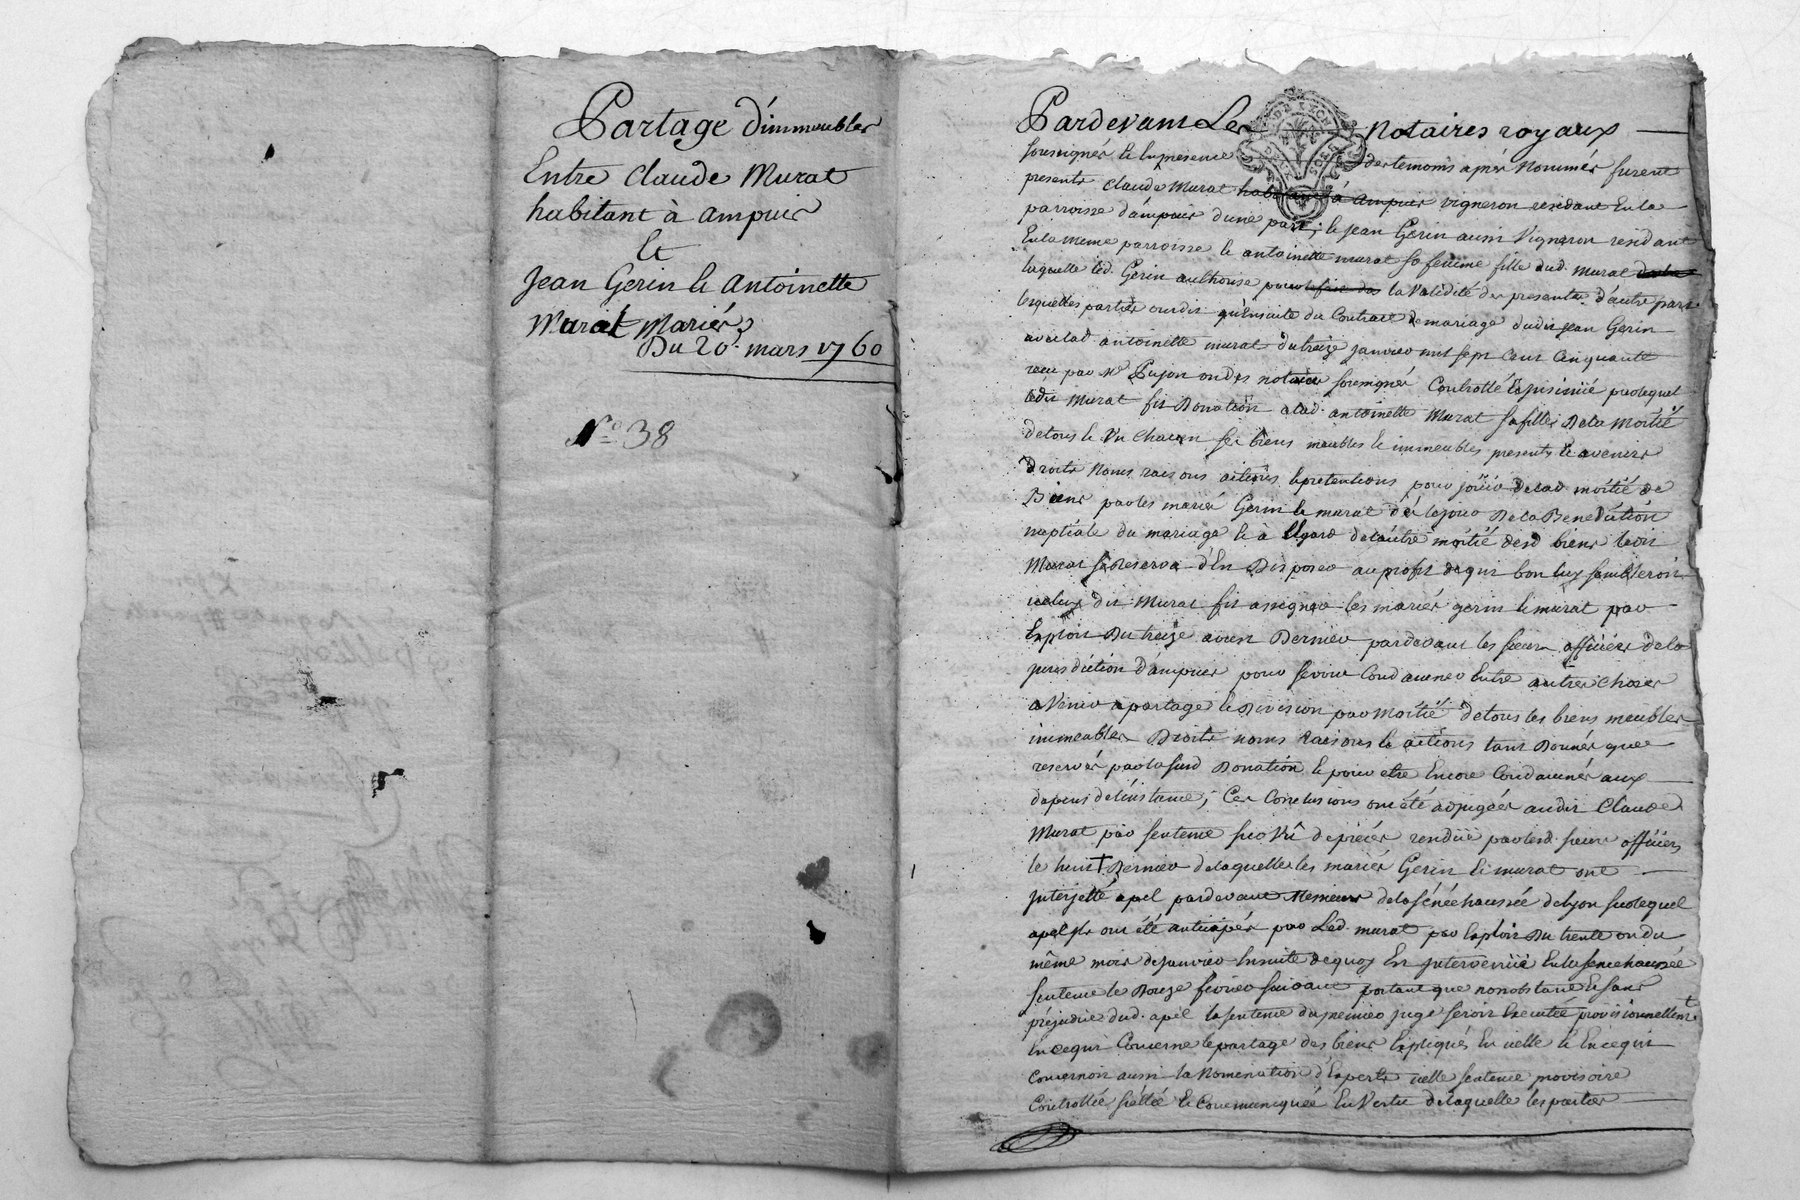 Partage d'immeubles
Entre Claude Murat
habitant à ampuis
Et
Jean Gerin Et Antoinette
Murat Mariés
Du 20e mars 1760
N° 38
Pardevant Les Notaires royaux
soussignés Et En presence des temoins après Nommés furent
presents Claude Murat habitant à Ampuis vigneron residant En la
parroisse d'ampuis d'une part, Et Jean Gerin aussi Vigneron residant
En la meme parroisse Et antoinette murat sa femme fille dud. Murat
laquelle led. Gerin authorise la Validité des presentes d'autre part
lesquelles parties ont dit qu'Ensuite du Contract de mariage dudit Jean Gerin
avec lad. antoinette murat du treize janvier mil sept Cent Cinquante
recu par Me Pujon un des notaires soussignés Controllé Et Insinüé par lequel
ledit Murat fit Donation a lad. antoinette Murat sa fille De la Moitié
de tous Et Un Chacun ses biens meubles Et immeubles presents Et avenirs
Droits Noms raisons actions Et pretentions pour joüir de lad. moitié de
Biens par les mariés Gerin Et murat dès le jour De la Benediction
nuptiale du mariage Et à l'Egard de l'autre moitié desd. biens ledit
Murat se Reserva d'En Disposer au profit de qui bon luy sembleroit
iceluy dit Murat fit assigner les mariés gerin Et murat par
Exploit Du treize Dernier pardevant les sieurs officiers de la
jurisdiction d'ampuis pour se voir Condamner Entre autres choses
a Venir a partage Et Division par Moitié de tous les biens meubles
immeubles Droits noms raisons Et actions tant Donnés que
reservés par la susd. Donation Et pour etre Encore Condamnés aux
depens de l'instance; Ces Conclusions ont été adjugées audit Claude
Murat par sentence sur Vû de pieces rendüe par lesd. sieurs officiers
le huit Dernier de laquelle les mariés Gerin Et murat ont
Interjetté apel pardevant Messieurs de la sénéchaussée de lyon sur lequel
apel ils ont été anticipés par Led. murat par Exploit Du trente ou du
même mois de janvier Ensuite de quoy Est Intervenüe En la senechaussée
sentence le Douze fevrier suivant portant que nonobstant Et sans
préjudice dud. apel la sentence du premier juge seroit Executée provisionnellemt
En ce qui Concerne le partage des biens Expliqués En icelle Et En ce qui
Concernoit aussi la Nomination d'Experts icelle sentence provisoire
Controllée, sçellée Et Communiquée En Vertu de laquelle les parties